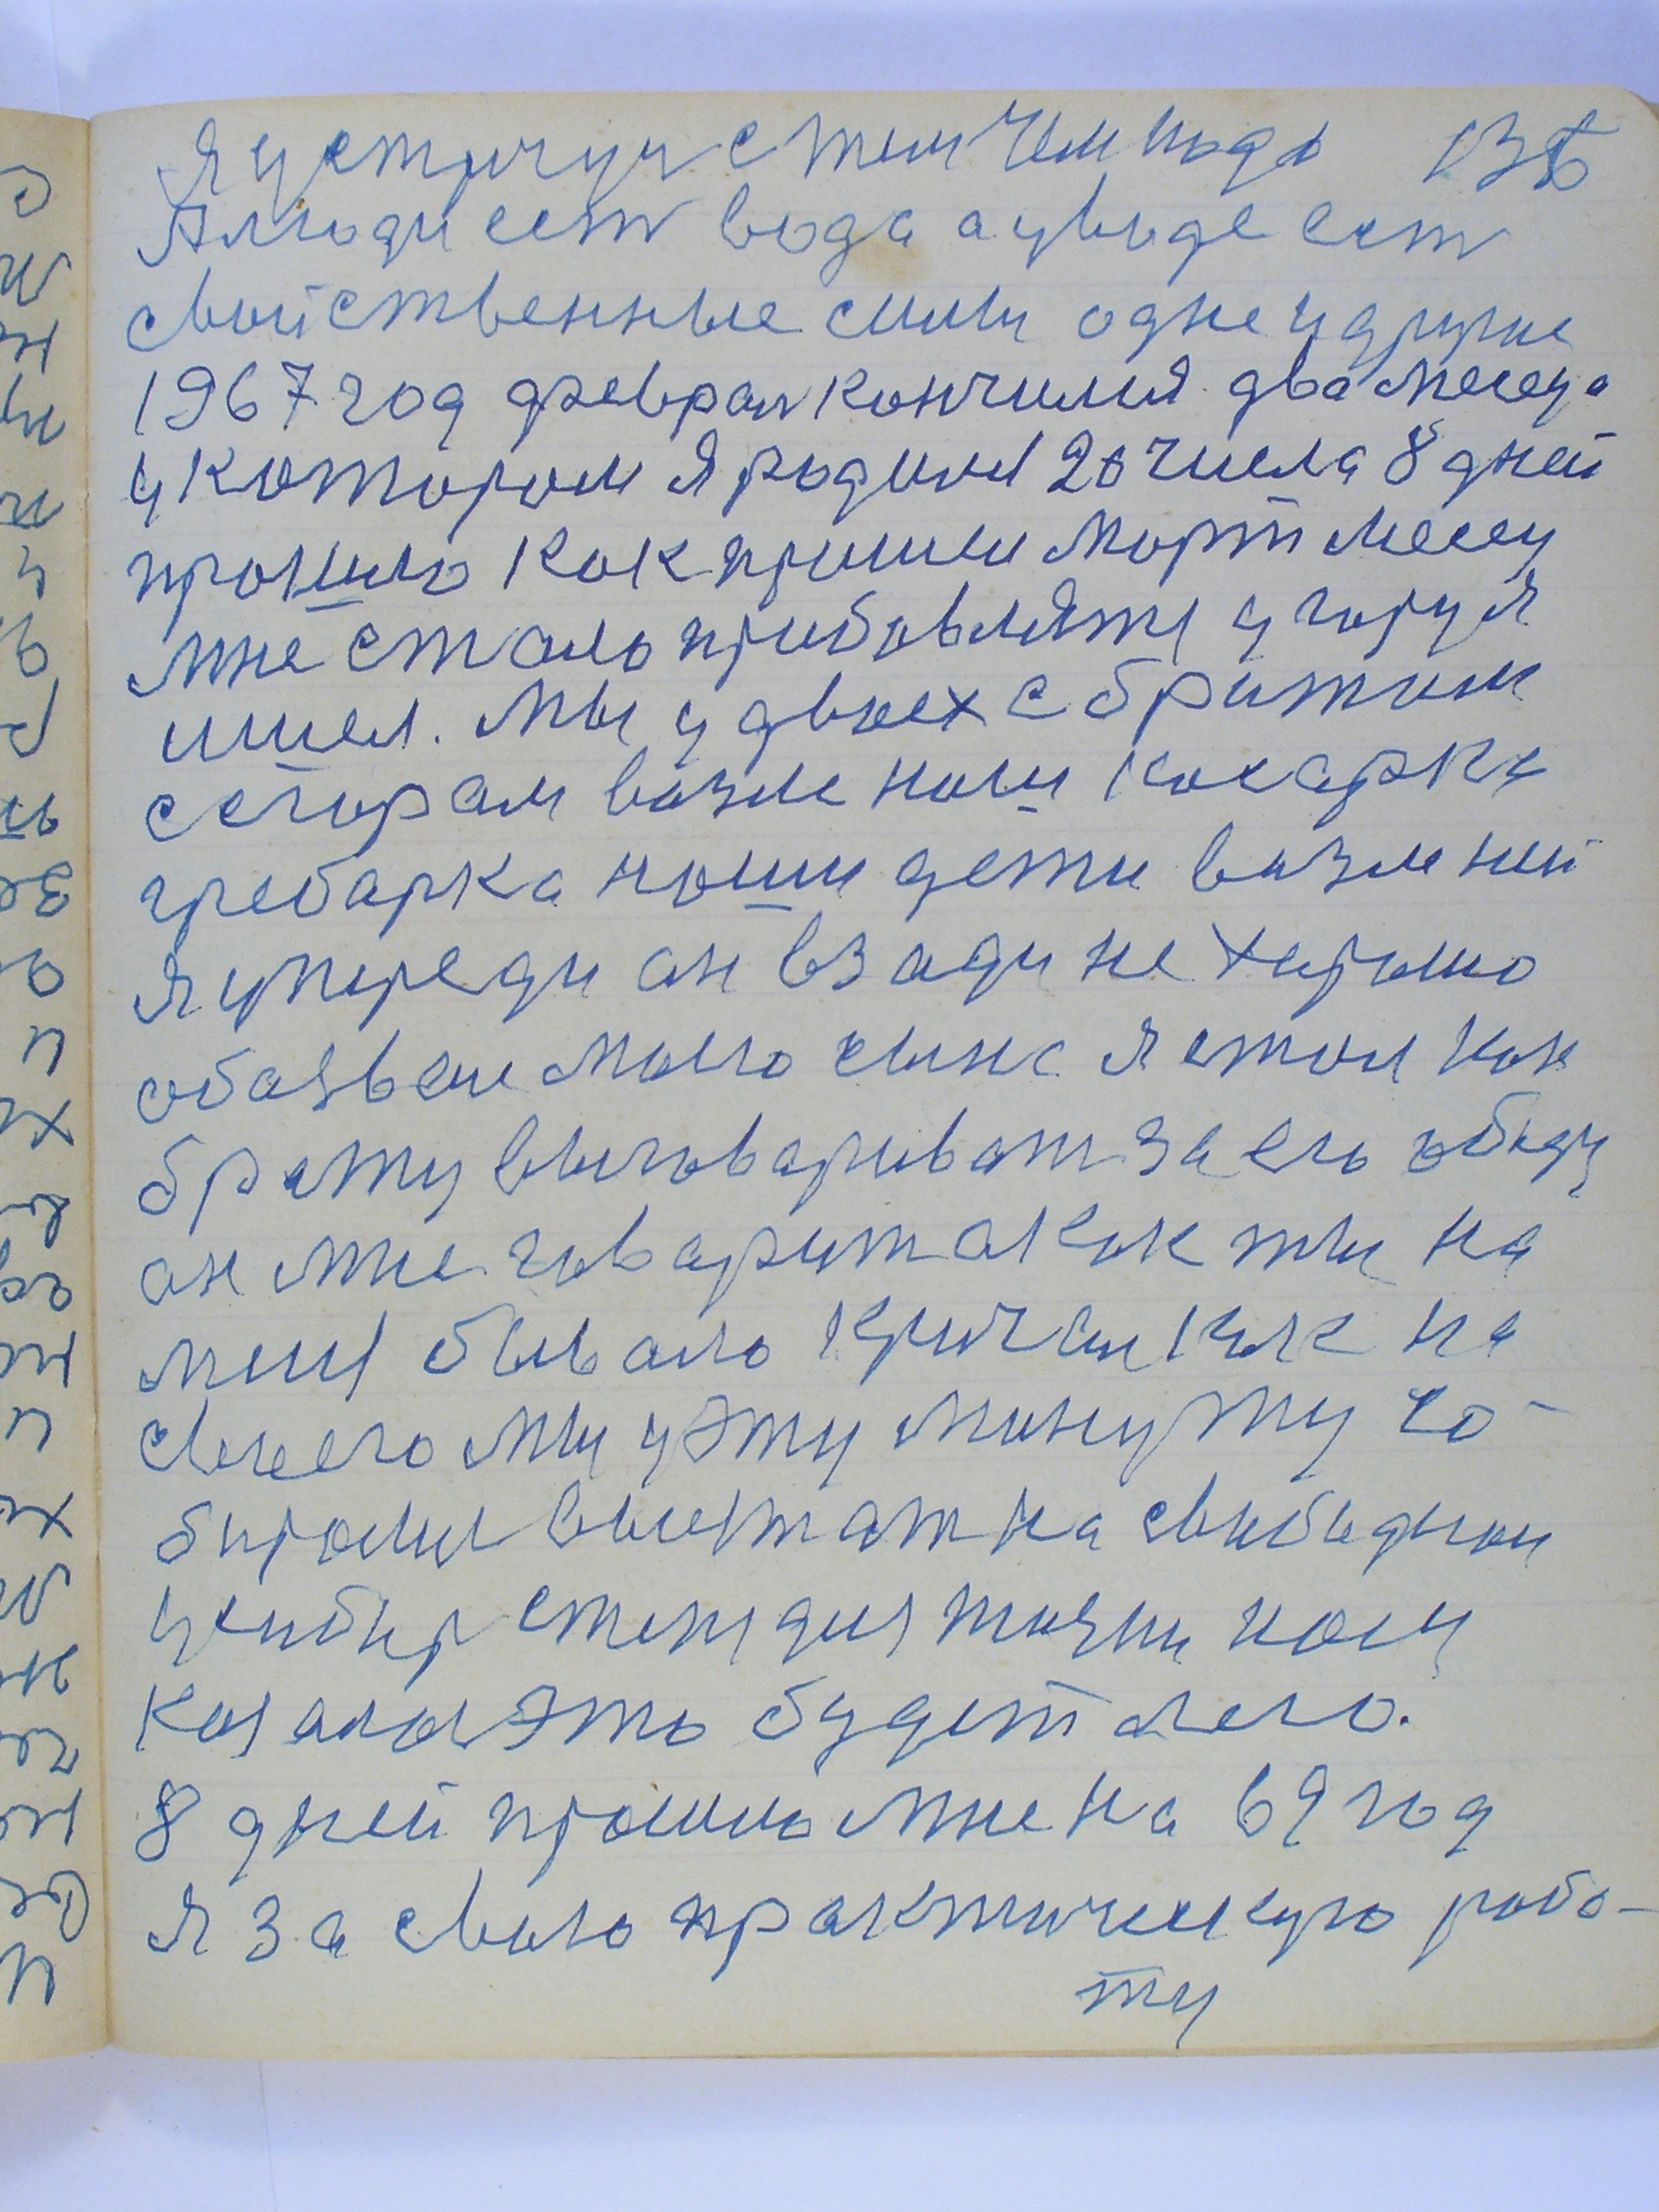 Я устричуи с тем чем надо 136
Алюди ест вода а у воде ест
свойственные силы одне и другие
1967 год феврал кончился два месеца
у котором я родился 20 числа 8 дней
прошло как пришел март месец
мне стало прибовляти у гору я
ишел. мы у двоех с братом
сегорам возле наш
гребарка наши дети возле ней
я упереди он взади не хорошо
обозвали моего сына я стал как
брату выговариват за его обиду
он мне говарит а как ты на
мене бывало кричал как на
своего мы у эту минуту со-
биралис выежат на свободном
жизни
казалос это будет легко.
8 дней прошло мне на 69 год
я за свою практическую рабо-
ту